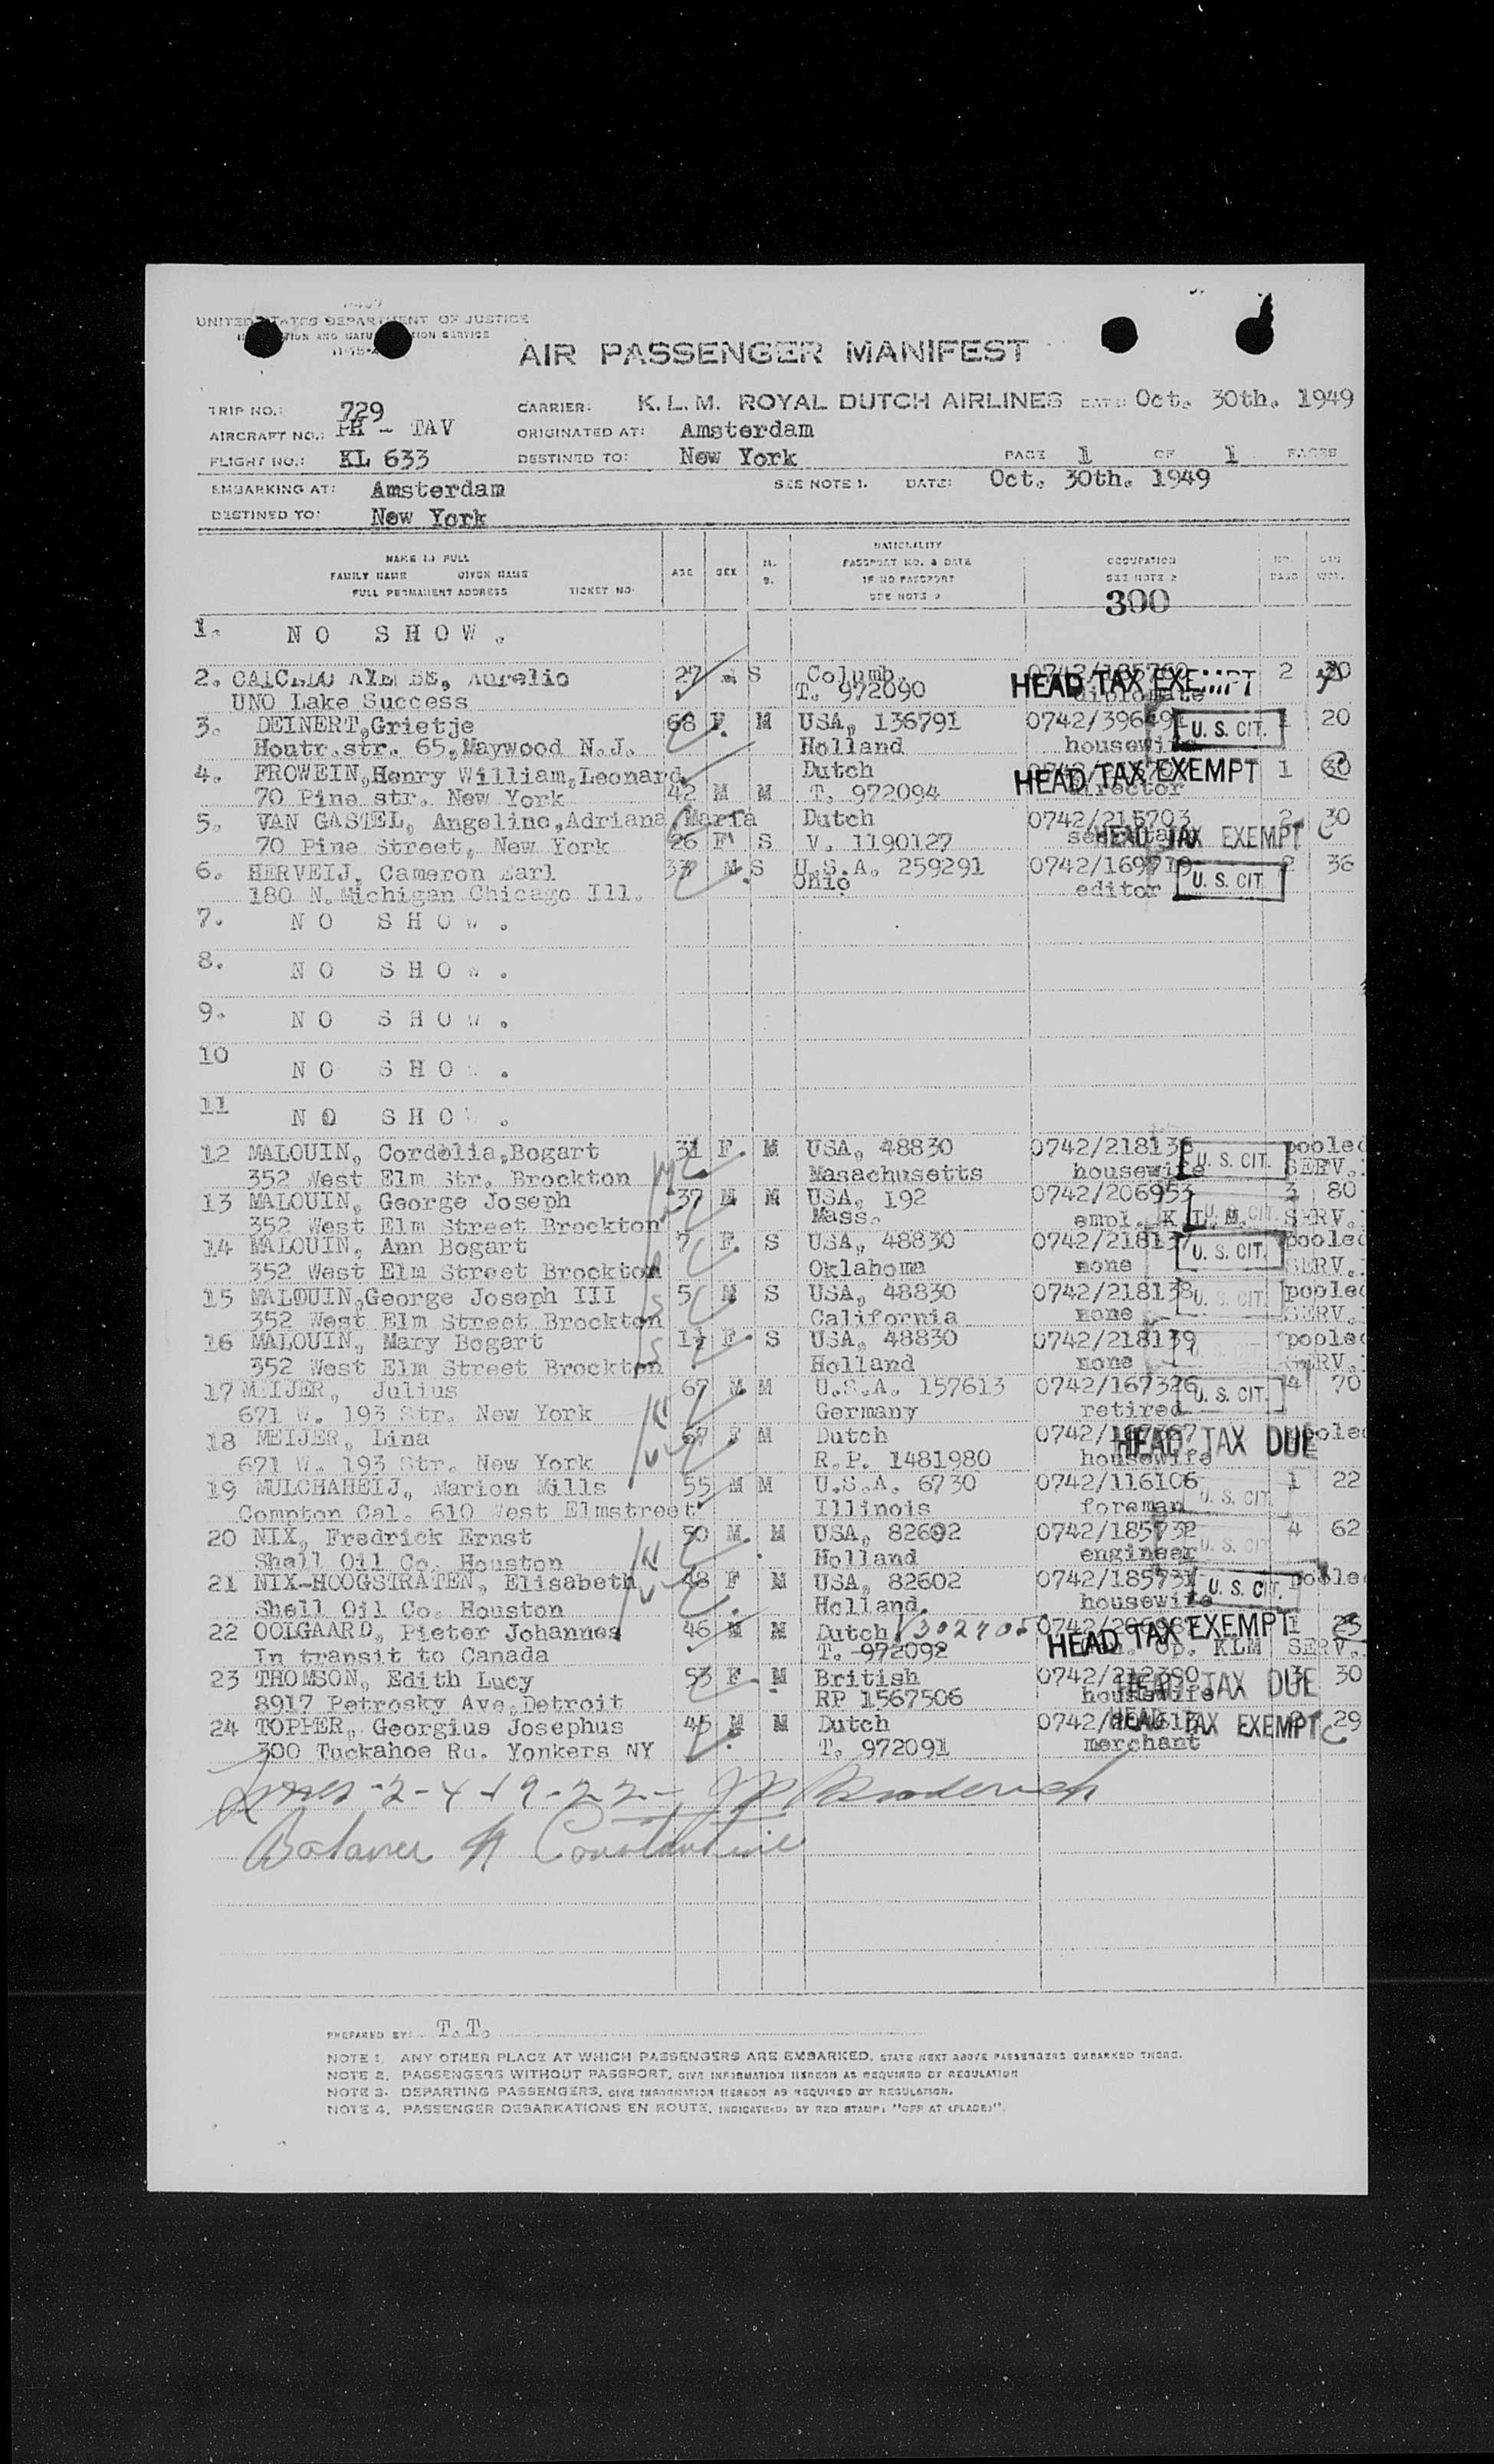 UNITED STATES DEPARTMENT OF JUSTICE
AIR PASSENGER MANIFEST
TRIP NO.: 729 CARRIER: K.L.M. ROYAL DUTCH AIRLINES DATE: Oct. 30th. 1949
AIRCRAFT NO.: PH - TAV ORIGINATED AT: Amsterdam
FLIGHT NO.: KL 633 DESTINED TO: New York PAGE 1 OF 1 PAGES
EMBARKING AT: Amsterdam SEE NOTE 1. DATE: Oct. 30th. 1949
DESTINED TO: New York
NAME IN FULL
FAMILY NAME GIVEN NAME
FULL PERMANENT ADDRESS TICKET NO.
AGE SEX M. S.
NATIONALITY
PASSPORT NO. & DATE
IF NO PASSPORT
OCCUPATION
SEE NOTE 2
300
1. NO SHOW.
2. Aurelio 27 S Columb. HEAD TAX EXEMPT 2
UNO Lake Success T. 972090
3. DEINERT,Grietje 68 F. M USA, 136791 U. S. CIT. 1 20
Houtr.str. 65,Maywood N.J. Holland housewife
4. FROWEIN,Henry William,Leonard Dutch HEAD TAX EXEMPT 1
70 Pine str. New York 42 M M T. 972094 director
5. VAN GASTEL, Angeline,Adriana,Maria Dutch 0742/215703 2 30
70 Pine Street, New York 26 F S V. 1190127 HEAD TAX EXEMPT
6. HERVEIJ, Cameron Earl M S U.S.A. 259291 0742/169719 2 36
180 N.Michigan Chicago Ill. Ohio editor U. S. CIT.
7. NO SHOW.
8. NO SHOW.
9. NO SHOW.
10 NO SHOW.
11 NO SHOW.
12 MALOUIN, Cordelia,Bogart 31 F. M USA, 48830 U. S. CIT. pooled
352 West Elm Str. Brockton Masachusetts housewife SERV.
13 MALOUIN, George Joseph 37 M M USA, 192 0742/206953 3 80
352 West Elm Street Brockton Mass. empl. K.L.M. U. S. CIT. SERV.
14 MALOUIN, Ann Bogart 7 F. S USA, 48830 0742/218137 U. S. CIT. pooled
352 West Elm Street Brockton Oklahoma none SERV.
15 MALOUIN,George Joseph III 5 M S USA, 48830 0742/218138 U. S. CIT. pooled
352 West Elm Street Brockton California none SERV.
16 MALOUIN, Mary Bogart F. S USA, 48830 0742/218139 U. S. CIT. pooled
352 West Elm Street Brockton Holland none SERV.
17 MEIJER, Julius 67 M M U.S.A. 157613 0742/167326 U. S. CIT. 4 70
671 W. 193 Str. New York Germany retired
18 MEIJER, Lina 67 F M Dutch HEAD TAX DUE pooled
671 W. 193 Str. New York R.P. 1481980 housewife
19 MULCHAHEIJ, Marion Mills 55 M M U.S.A. 6730 0742/116106 U. S. CIT. 1 22
Compton Cal. 610 West Elmstreet Illinois foreman
20 NIX, Fredrick Ernst 50 M. M USA, 82602 0742/185732 4 62
Shell Oil Co. Houston Holland engineer U. S. CIT.
21 NIX-HOOGSTRATEN, Elisabeth 48 F M USA, 82602 0742/185731 U. S. CIT. pooled
Shell Oil Co. Houston Holland. housewife
22 OOLGAARD, Pieter Johannes 46 M M Dutch HEAD TAX EXEMPT 1
In transit to Canada T. 972092 Op. KLM SERV.
23 THOMSON, Edith Lucy 53 F. M British HEAD TAX DUE 3 30
8917 Petrosky Ave,Detroit RP 1567506 housewife
24 TOPPER, Georgius Josephus 45 M M Dutch HEAD TAX EXEMPT 29
300 Tuckahoe Ru. Yonkers NY T. 972091 merchant
PREPARED BY: T.T.
NOTE 1. ANY OTHER PLACE AT WHICH PASSENGERS ARE EMBARKED, STATE NEXT ABOVE PASSENGERS EMBARKED THERE.
NOTE 2. PASSENGERS WITHOUT PASSPORT, GIVE INFORMATION HEREON AS REQUIRED BY REGULATION
NOTE 3. DEPARTING PASSENGERS, GIVE INFORMATION HEREON AS REQUIRED BY REGULATION.
NOTE 4. PASSENGER DEBARKATIONS EN ROUTE, INDICATE(D) BY RED STAMP: "OFF AT (PLACE)".